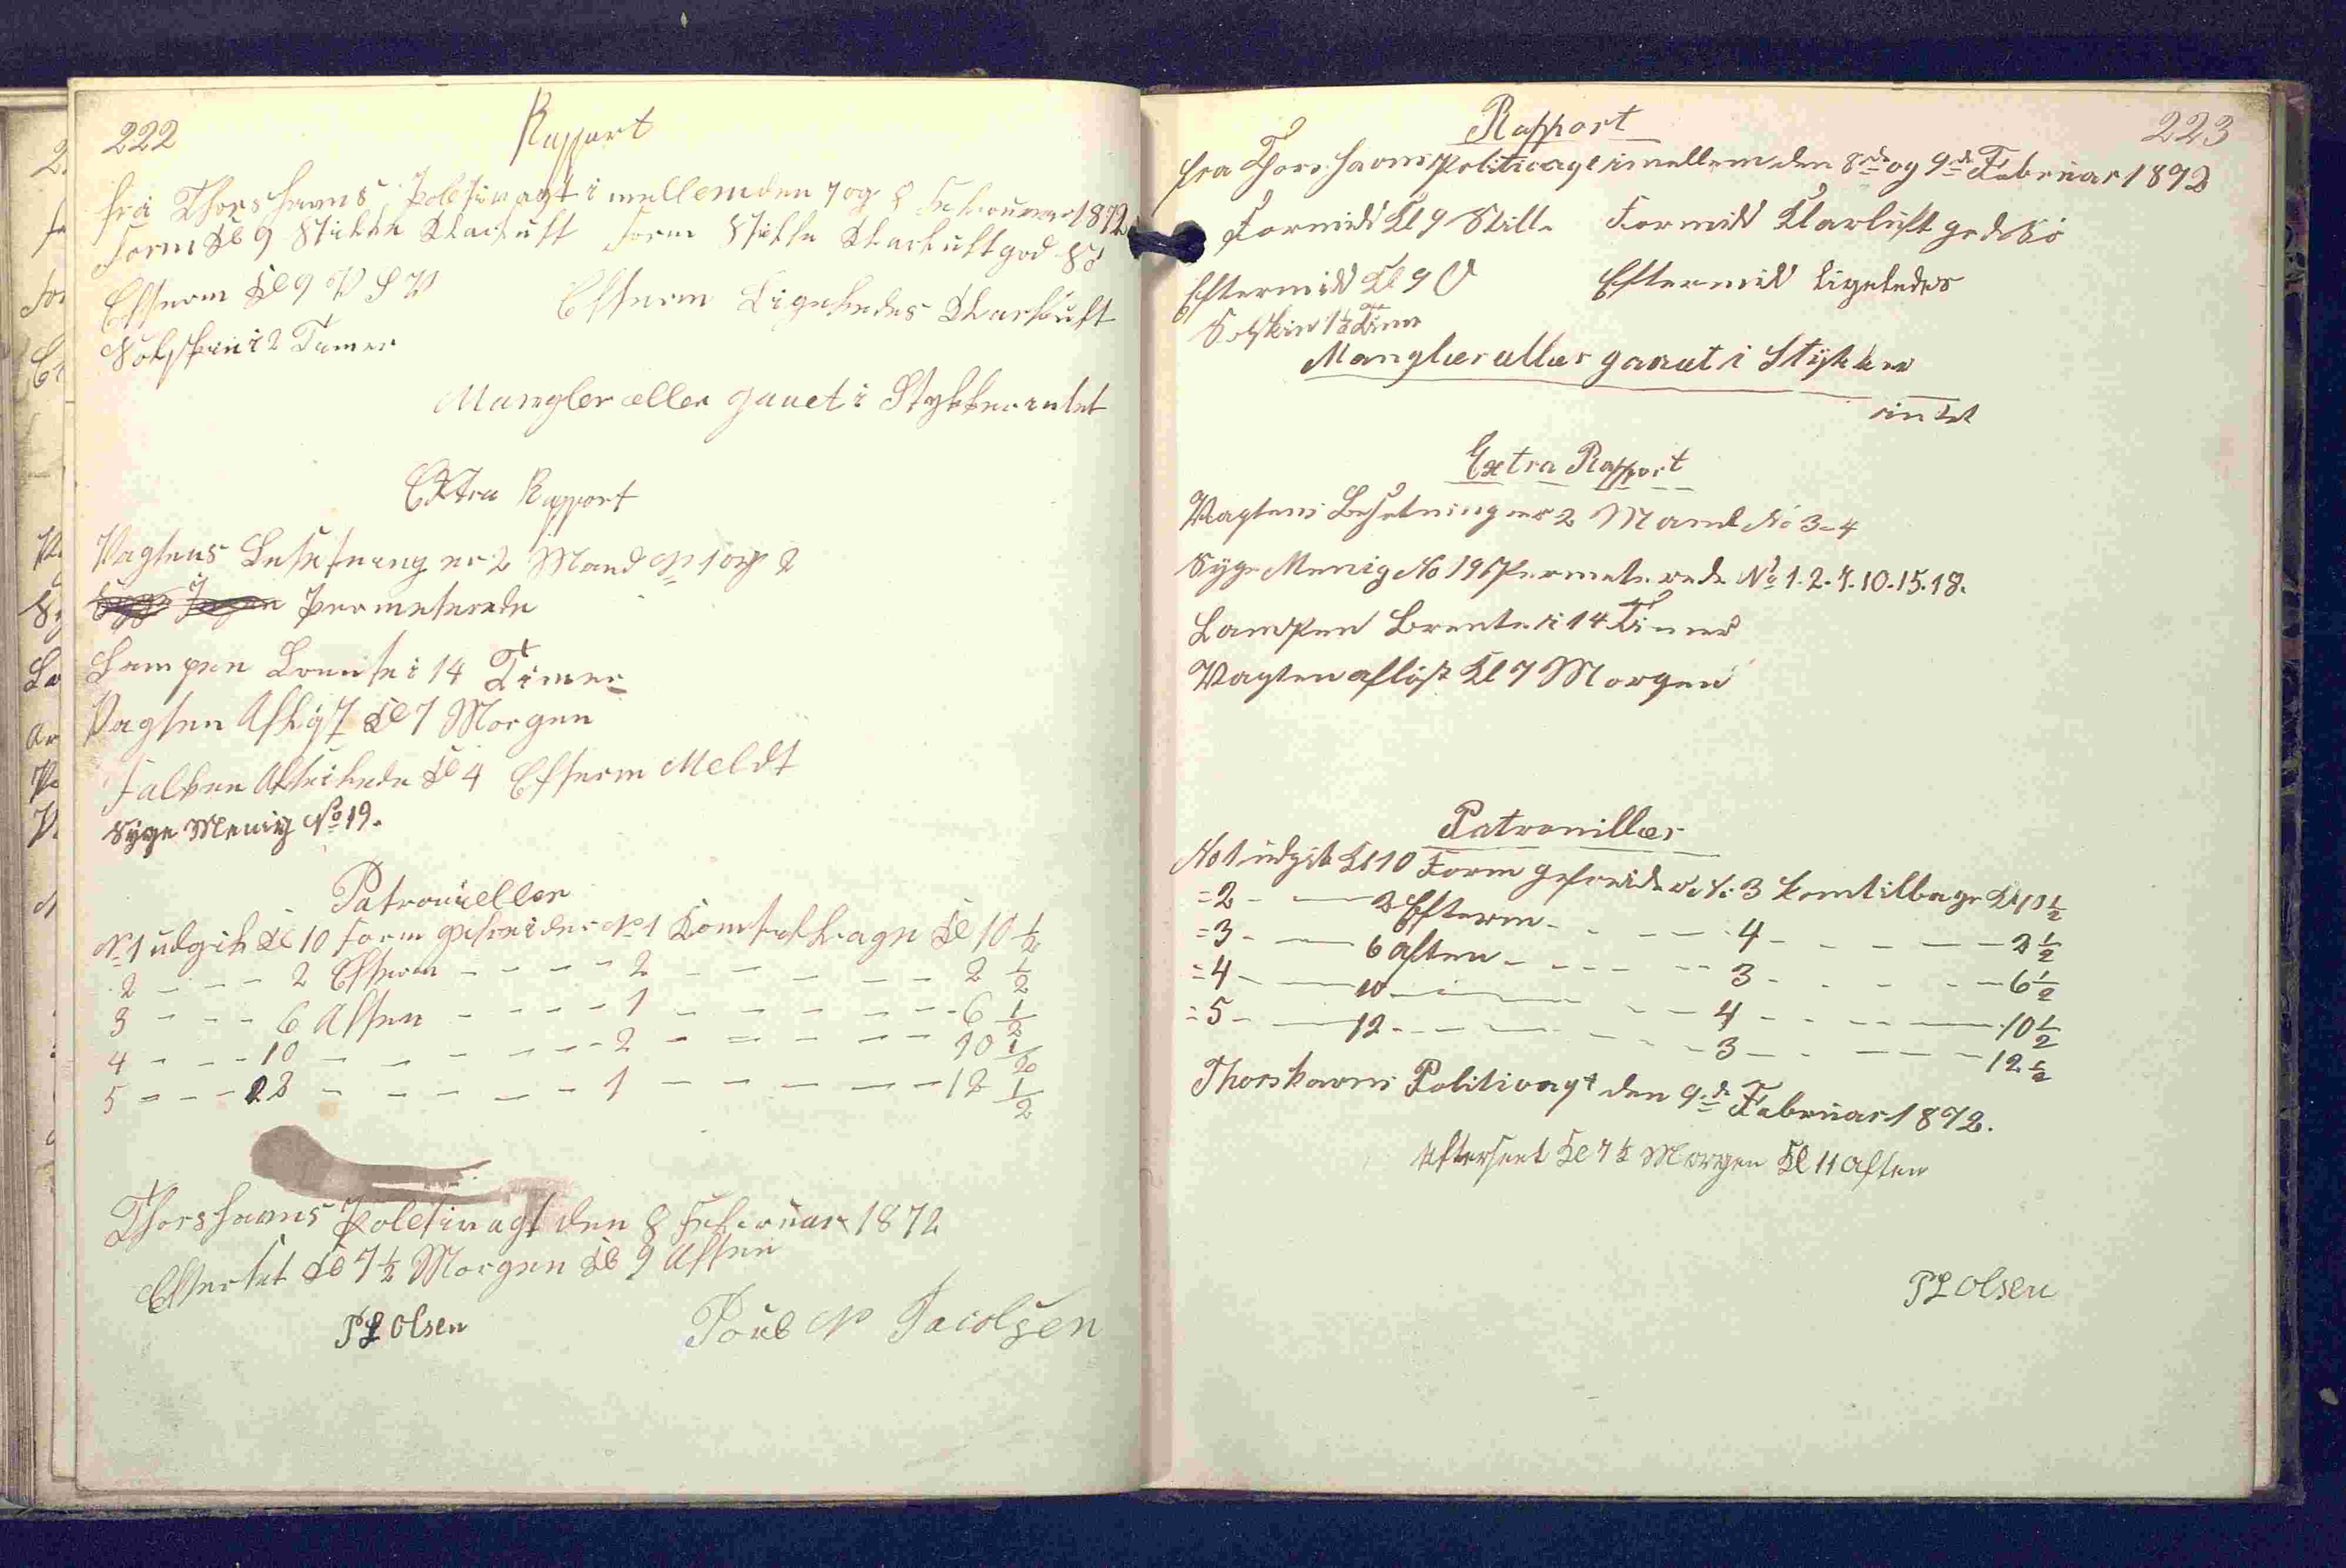 222
Rapport
fra Thorshavns Poletivagt i mellem den 7 og 8 Februar 1872
Form Kl 9 Stille Klarluft Form Stille Klarluft god Sö
Efterm Kl 9 V S V Efterm Ligeledes Klarluft
Solskin i 2 Timer
Mangler eller gaaet i Stykker intet
Extra Rapport
Vagtens Besetning er 2 Mand No 1 og 2
Permeterede
Lampen Brente i 14 Timer
Vagten Afløst Kl 7 Morgen
Falken Kl 4 Efterm Meldt
Syge Menig No 19.
Patroueller
No 1 udgik Kl 10 Form gefreider No 1 Kom telbage Kl 10 1/2
2 - - - 2 Efterm - - - - 2 - - - - - 2 1/2
3 - - - 6 Aften - - - - 1 - - - - - 6 1/2
4 - - - 10 - - - - - - 2 - - - - - 10 1/2
5 - - - 12 - - - - - 1 - - - - - 12 1/2
Thorshavns Poletivagt den 8 Februar 1872
Efterset Kl 7 1/2 Morgen Kl 9 Aften
P L Olsen Poul N Jacobsen
223
Rapport
fra Thorshavns Politivagt imellem den 8de og 9de Februar 1872
Formidd Kl 9 Stille Formidd Klarluft god Sö
Eftermidd Kl 9 O Eftermidd ligeledes
Solskin 1 1/2 Time
Mangler eller gaaet i Stykker
intet
Extra Rapport
Vagtens Besetning er 2 Mand No 3-4
Syge Menig No 19 Permeterede No 1. 2. 7. 10. 15. 18.
Lampen Brente i 14 Timer
Vagten afløst Kl 7 Morgen
Patrouiller
No 1 udgik Kl 10 Form gefreider No 3 kom tilbage Kl 10 1/2
=2 - — 2 Efterm - - - - 4 - - - - 2 1/2
=3 - — 6 Aften - - - - 3 - - - - 6 1/2
=4 - — 10 - - - - 4 - - - - 10 1/2
=5 - — 12 - - - - 3 - - - - 12 1/2
Thorshavns Politivagt den 9de Februar 1872.
Efterseet Kl 7 1/2 Morgen Kl 11 Aften
P L Olsen